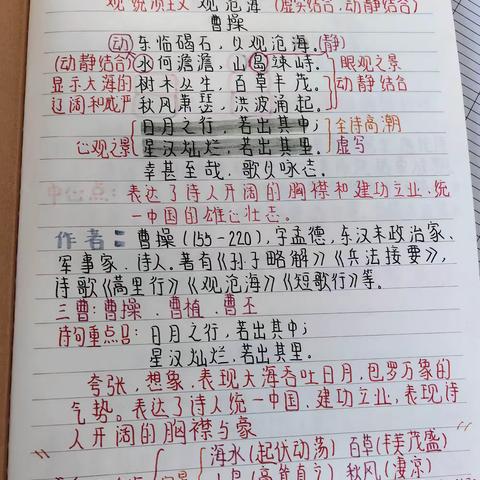 观沧海 (虚实结合,动静结合)
曹操
(动) 东临碣石,以观沧海。(静)
(动静结合) 水何澹澹,山岛竦峙。 眼观之景
显示大海的 树木丛生,百草丰茂。 动静结合
辽阔和威严 秋风萧瑟,洪波涌起。
日月之行,若出其中; 全诗高潮
心观之景 星汉灿烂,若出其里。 虚写
幸甚至哉,歌以咏志。
中心点:表达了诗人开阔的胸襟和建功立业,统
一中国的雄心壮志。
作者:曹操(155-220),字孟德,东汉末政治家、
军事家、诗人。著有《孙子略解》《兵法接要》,
诗歌《蒿里行》《观沧海》《短歌行》等。
三曹:曹操、曹植、曹丕
诗句重点:日月之行,若出其中;
星汉灿烂,若出其里。
夸张,想象,表现大海吞吐日月,包罗万象的
气势。表达了诗人统一中国、建功立业,表现诗
人开阔的胸襟与豪
海水(起伏动荡) 百草(丰美茂盛)
山岛(高耸直立) 秋风(凄凉)